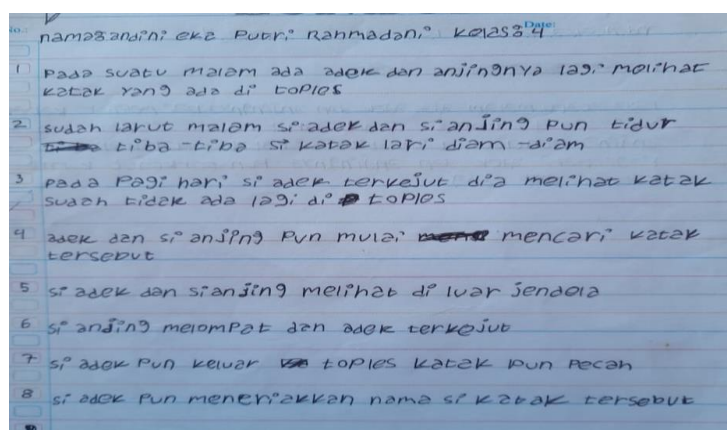 No.: Date:
nama: andini eka Putri Rahmadani kelas: 4
1 Pada suatu malam ada adek dan anjingnya lagi melihat
katak yang ada di toples
2 sudah larut malam si adek dan si anjing pun tidur
tiba-tiba si katak lari diam-diam
3 pada Pagi hari si adek terkejut dia melihat katak
sudah tidak ada lagi di toples
4 adek dan si anjing Pun mulai mencari katak
tersebut
5 si adek dan si anjing melihat di luar jendela
6 si anjing melompat dan adek terkejut
7 si adek Pun keluar toples katak pun Pecah
8 si adek Pun meneriakkan nama si katak tersebut
9